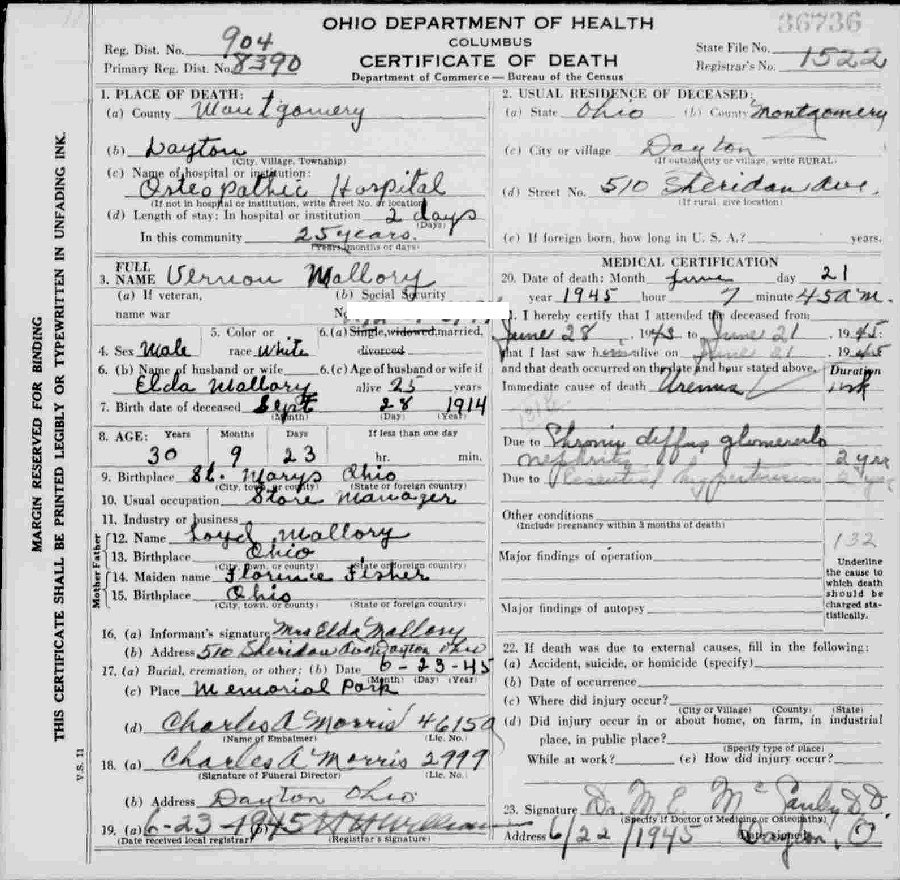 OHIO DEPARTMENT OF HEALTH
COLUMBUS
CERTIFICATE OF DEATH
Department of Commerce — Bureau of the Census
36736
Reg. Dist. No. 904
Primary Reg. Dist. No. 8390
State File No.
Registrar's No. 1522
MARGIN RESERVED FOR BINDING
THIS CERTIFICATE SHALL BE PRINTED LEGIBLY OR TYPEWRITTEN IN UNFADING INK.
V.S. 11
1. PLACE OF DEATH:
(a) County Montgomery
(b) Dayton
(City, Village, Township)
(c) Name of hospital or institution:
Osteopathic Hospital
(If not in hospital or institution, write street No. or location)
(d) Length of stay: In hospital or institution 2 days
(Days)
In this community 25 years.
(Years, months or days)
2. USUAL RESIDENCE OF DECEASED:
(a) State Ohio (b) County Montgomery
(c) City or village Dayton
(If outside city or village, write RURAL)
(d) Street No. 510 Sheridan Ave.
(If rural, give location)
(e) If foreign born, how long in U. S. A.? years.
3. FULL NAME Vernon Mallory
(a) If veteran, name war
(b) Social Security
4. Sex Male
5. Color or race White
6. (a) Single, widowed, married, divorced
6. (b) Name of husband or wife
Elda Mallory
6. (c) Age of husband or wife if alive 25 years
7. Birth date of deceased Sept 28 1914
(Month) (Day) (Year)
8. AGE: Years Months Days If less than one day
30 9 23 hr. min.
9. Birthplace St. Marys Ohio
(City, town, or county) (State or foreign country)
10. Usual occupation Store Manager
11. Industry or business
Father
12. Name Loyd Mallory
13. Birthplace Ohio
(City, town, or county) (State or foreign country)
Mother
14. Maiden name Florence Fisher
15. Birthplace Ohio
(City, town, or county) (State or foreign country)
16. (a) Informant's signature Mrs Elda Mallory
(b) Address 510 Sheridan Ave Dayton Ohio
17. (a) Burial, cremation, or other; (b) Date 6-23-45
(Month) (Day) (Year)
(c) Place Memorial Park
(d) Charles A Morris 4615A
(Name of Embalmer) (Lic. No.)
18. (a) Charles A Morris 2999
(Signature of Funeral Director) (Lic. No.)
(b) Address Dayton Ohio
19. (a) 6-23-1945
(Date received local registrar) (Registrar's signature)
MEDICAL CERTIFICATION
20. Date of death: Month June day 21
year 1945 hour 7 minute 45 a m.
I hereby certify that I attended the deceased from
June 28, 1943 to June 21, 1945;
that I last saw him alive on June 21 1945
and that death occurred on the date and hour stated above.
Duration
Immediate cause of death Uremia 1 wk
Due to Chronic diffus glomerulo
nephritis 2 year
Due to Essential hypertension
Other conditions
(Include pregnancy within 3 months of death)
132
Major findings of operation
Major findings of autopsy
Underline
the cause to
which death
should be
charged sta-
tistically.
22. If death was due to external causes, fill in the following:
(a) Accident, suicide, or homicide (specify)
(b) Date of occurrence
(c) Where did injury occur?
(City or Village) (County) (State)
(d) Did injury occur in or about home, on farm, in industrial
place, in public place?
(Specify type of place)
While at work? (e) How did injury occur?
23. Signature Dr. M. E. McCauly D.O.
(Specify if Doctor of Medicine or Osteopathy)
Address 6/22/1945 Dayton, O.